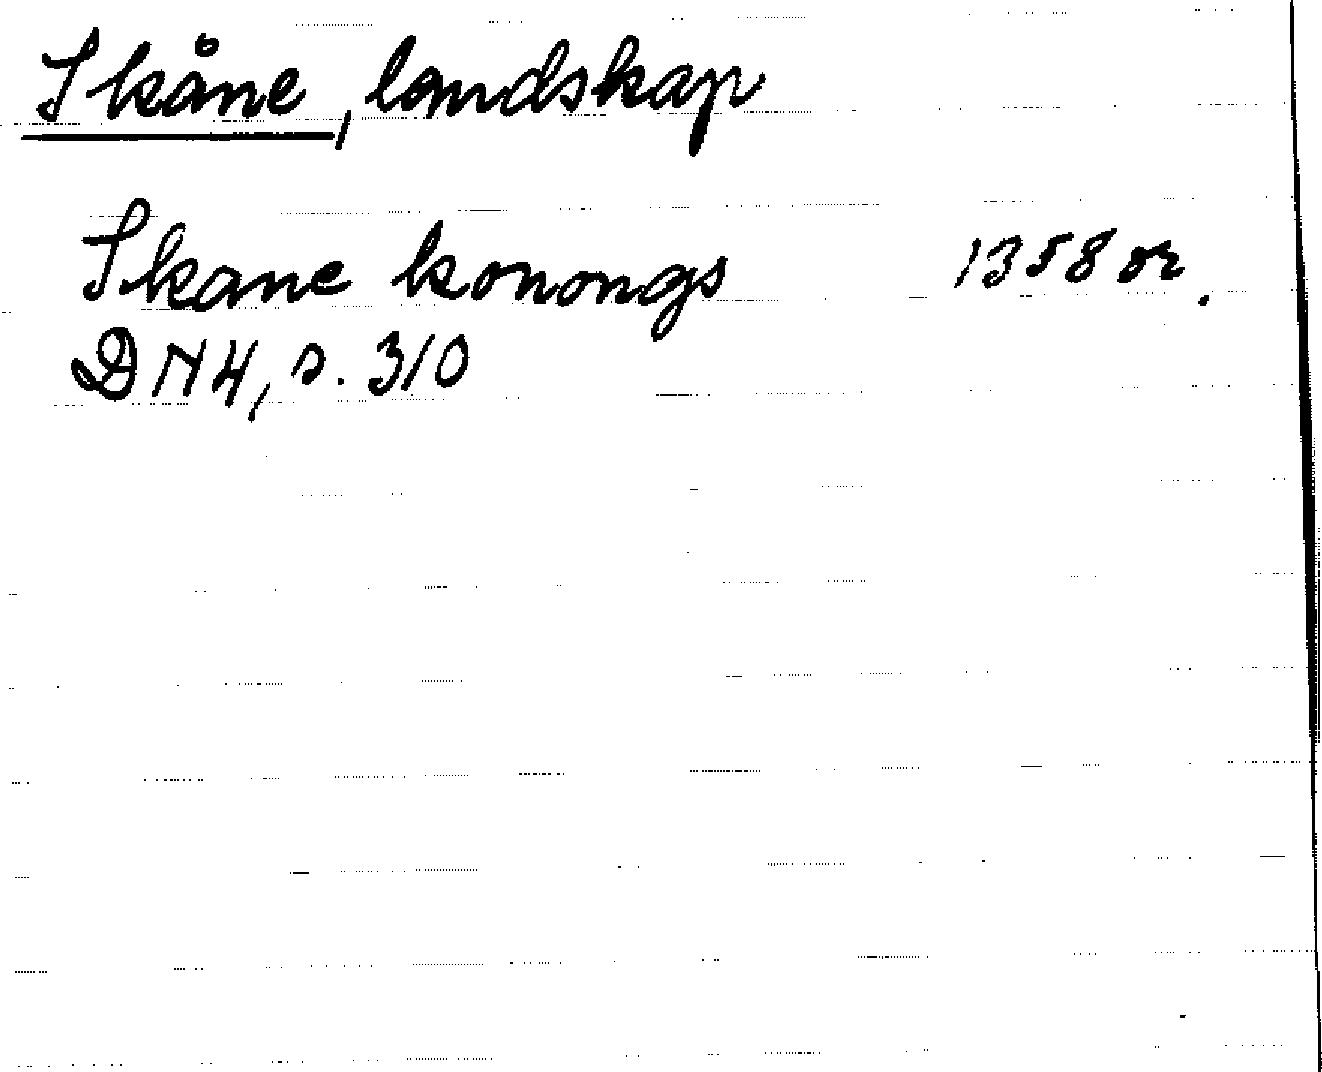 Skåne, landskap
Skane konongs 1358 or.
DN 4, s. 310